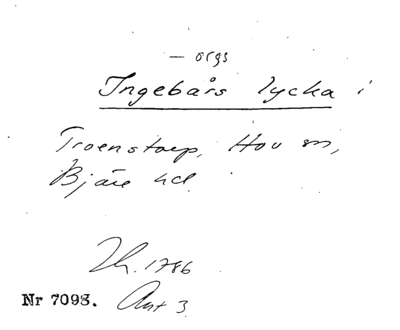 — orgs
Ingebårs lycka i
Troenstorp, Hov sn,
Bjäre hd.
Lh. 1786
Nr 7098. Akt 3